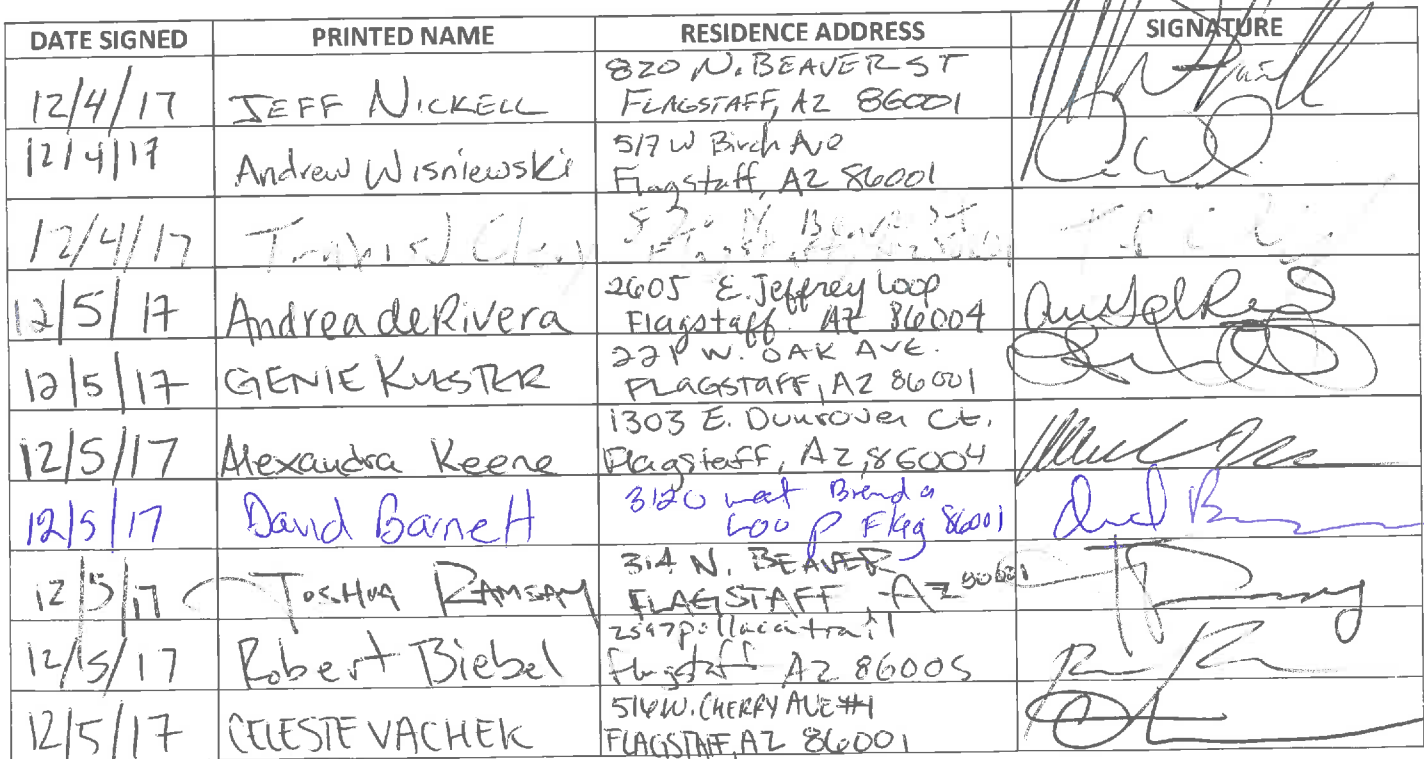 DATE SIGNED PRINTED NAME RESIDENCE ADDRESS SIGNATURE
12/4/17 JEFF NICKELL 820 N. BEAVER ST
FLAGSTAFF, AZ 86001
12/4/17 Andrew Wisniewski 517 W Birch Ave
Flagstaff, AZ 86001
12/4/17
12/5/17 Andrea deRivera 2605 E. Jeffrey Loop
Flagstaff AZ 86004
12/5/17 GENIE KUESTER W. OAK AVE.
FLAGSTAFF, AZ 86001
12/5/17 Alexandra Keene 1303 E. Dunrover Ct.
Flagstaff, AZ, 86004
12/5/17 David Barnett 3120 west Brenda
Loop Flag 86001
12/5/17 JOSHUA RAMSAY 314 N. BEAVER
FLAGSTAFF, AZ
12/5/17 Robert Biebel trail
flagstaff AZ 86005
12/5/17 CELESTE VACHEK 516 W. CHERRY AVE #1
FLAGSTAFF, AZ 86001